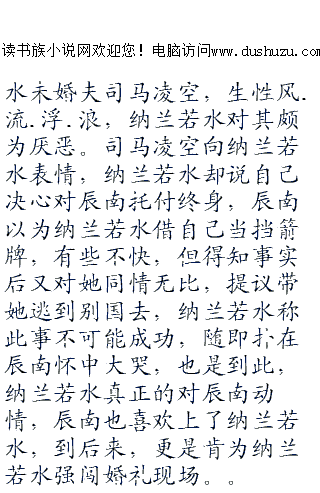 读书族小说网欢迎您！电脑访问www.dushuzu.com
水未婚夫司马凌空，生性风.
流.浮.浪，纳兰若水对其颇
为厌恶。司马凌空向纳兰若
水表情，纳兰若水却说自己
决心对辰南托付终身，辰南
以为纳兰若水借自己当挡箭
牌，有些不快，但得知事实
后又对她同情无比，提议带
她逃到别国去，纳兰若水称
此事不可能成功，随即扑在
辰南怀中大哭，也是到此，
纳兰若水真正的对辰南动
情，辰南也喜欢上了纳兰若
水，到后来，更是肯为纳兰
若水强闯婚礼现场。。